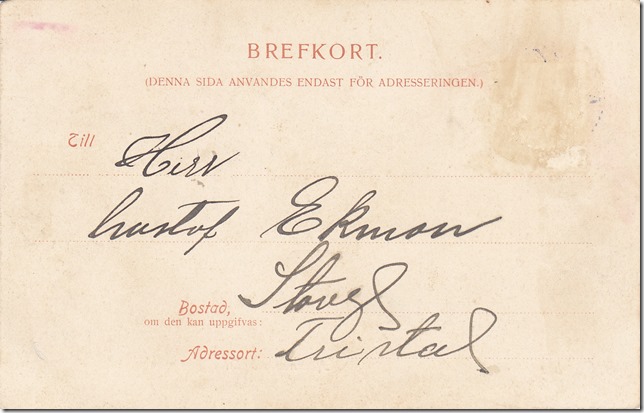 BREFKORT.
(DENNA SIDA ANVANDES ENDAST FÖR ADRESSERINGEN.)
Till Herr
Gustof Ekman
Bostad,
om den kan uppgifvas:
Adressort: Tristal